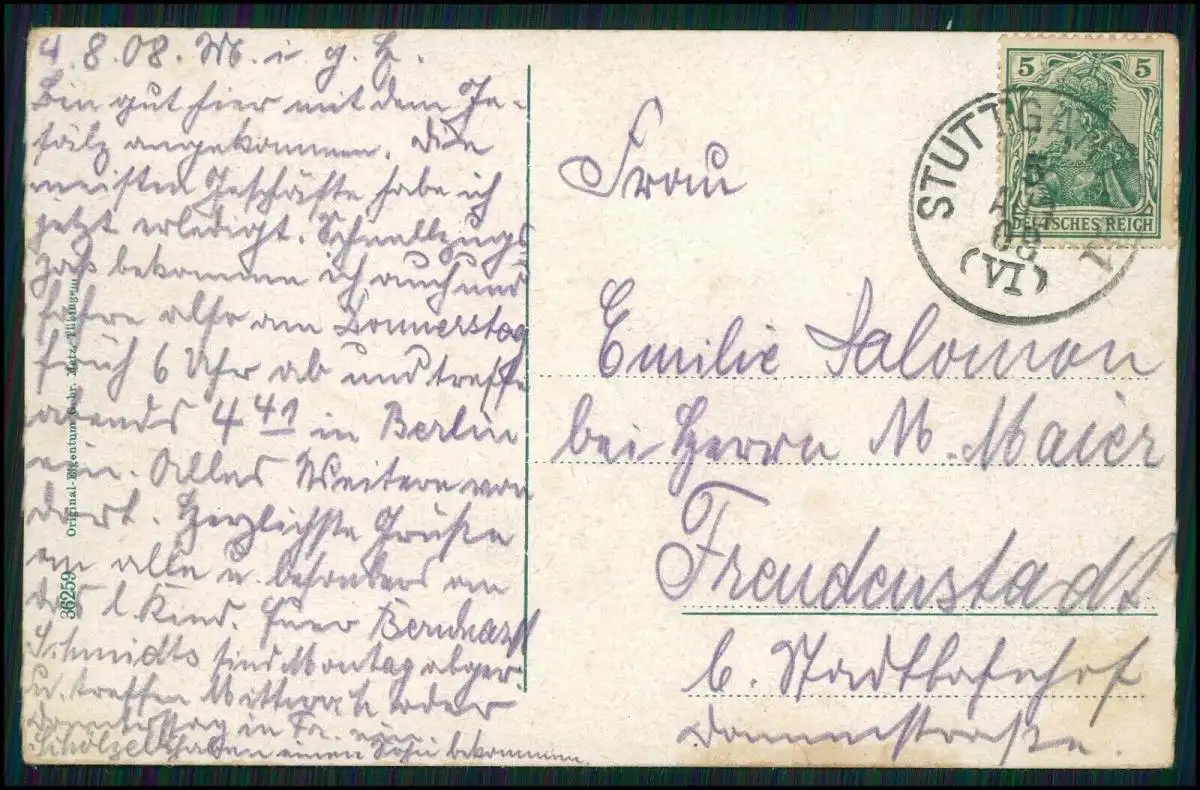 4.8.08. M. i. g. H.
Bin gut hier mit dem Ge-
fälz angekommen. Die
meisten Geschäfte habe ich
jetzt erledigt. Schnellzugs
paß bekomme ich auch und
fahre also am Donnerstag
früh 6 Uhr ab und treffe
abends 4 41 in Berlin
ein. Alles Weitere von
dort. Herzlichste Grüße
an alle u. besonders an
das l. Kind. Euer Bernhard
Schmidts sind Montag abger.
u. treffen Mittwoch oder
Donnerstag in Fr. ein.
Schölzel haben einen Sohn bekommen.
36259 Original-Eigentum Gebr. Metz, Tübingen
5 5
DEUTSCHES REICH
STUTTGA
5
AUG
08
(VI)
Frau
Emilie Salomon
bei Herrn M. Maier
Freudenstadt
b. Stadtbahnhof
Dammstraße.